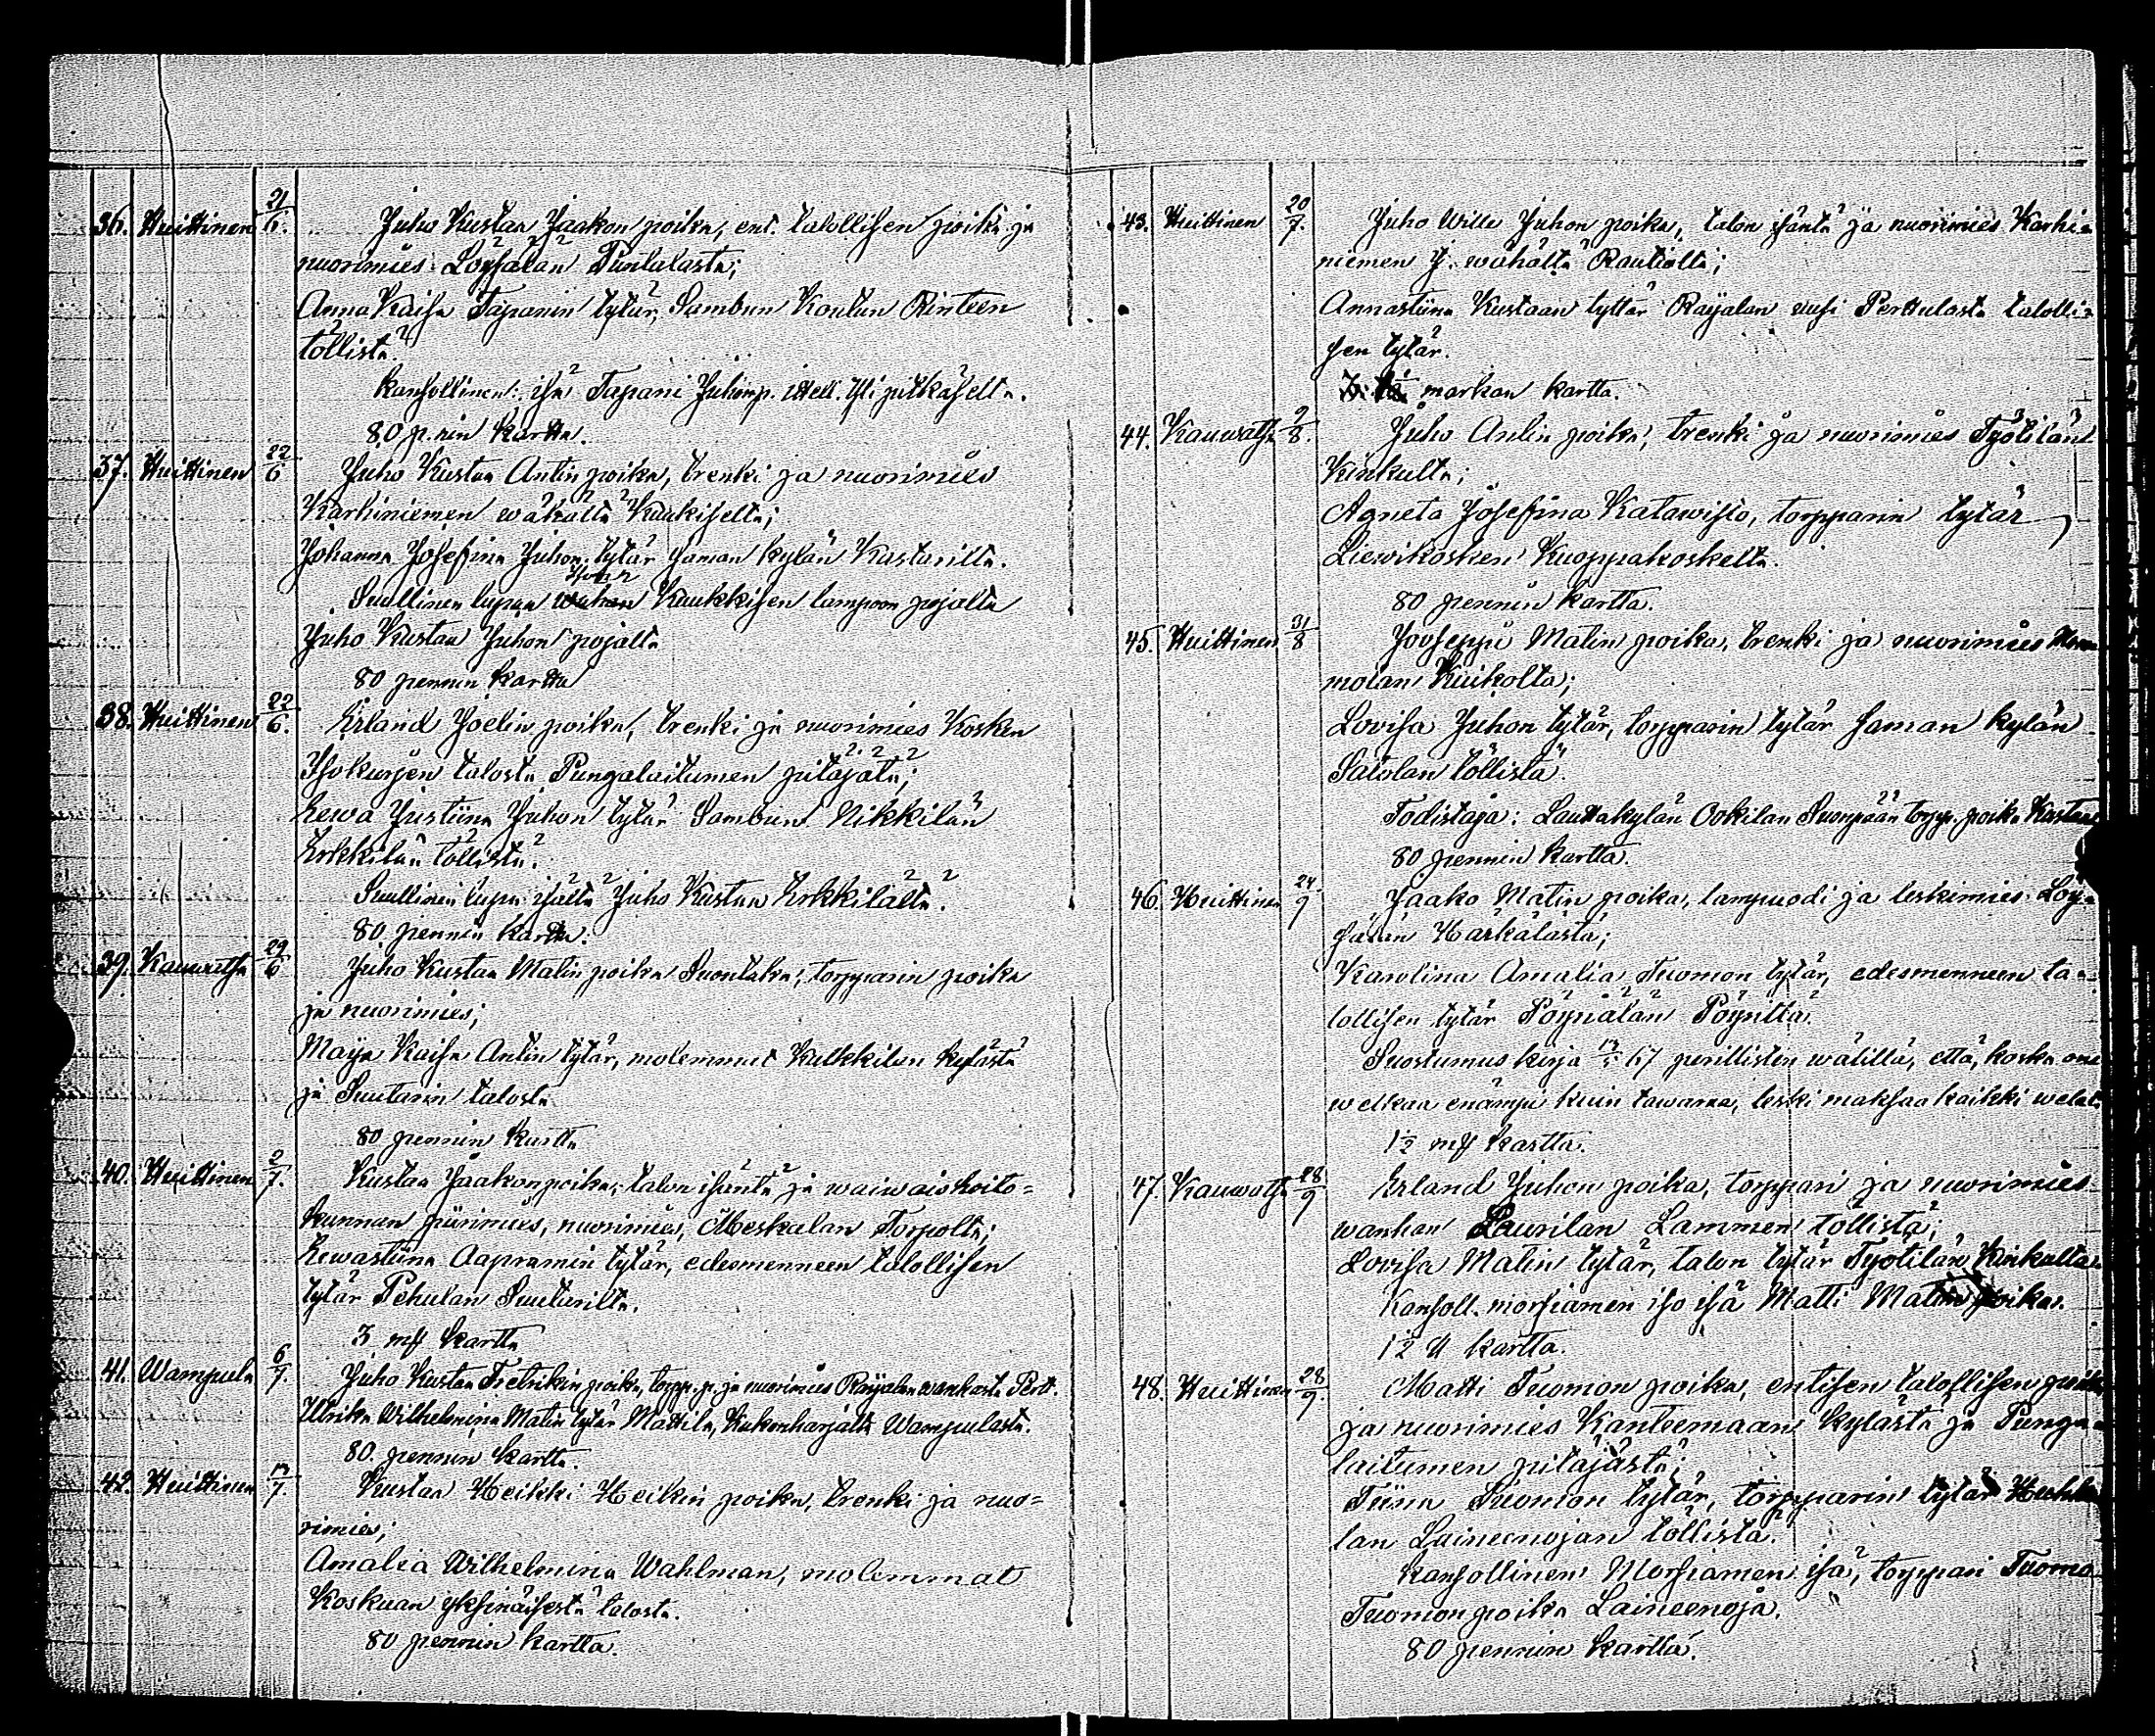 36. Huittinen 21/6. Juho Kustaa Jaakon poika, ent. talollisen poika ja
nuorimies Löysälän Puntalasta;
Anna Kaisa Tapanin tytär, Sambun Koutun Rinteen
töllistä.
Kansollinen: isä Tapani Juhonp. itell. Yli pitkäseltä.
80 p:nin kartta.
37. Huittinen 22/6 Juho Kustaa Antin poika, trenki ja nuorimies
Karhiniemen wähältä Kaukiselta;
Johanna Josefina Juhon tytär saman kylän Kustarilta.
Suullinen lupa Ison Kaukkisen lampuon pojalta
Juho Kustaa Juhon pojalta
80 pennin kartta
38. Huittinen 22/6. Erland Joelin poika, trenki ja nuorimies Kosken
Isokurjen talosta Pungalaitumen pitäjätä;
Eewa Justiina Juhon tytär Sambun Nikkilän
Erkkilän töllistä.
Suullinen lupa isältä Juho Kustaa Erkkilältä.
80 pennin kartta.
39. Kauwatsa 29/6 Juho Kustaa Matin poika Suontaka, torpparin poika
ja nuorimies;
Maija Kaisa Antin tytär, molemmat Kulkkilan kylästä
ja Suutarin talosta
80 pennin kartta
40. Huittinen 2/7. Kustaa Jaakonpoika, talon isäntä ja waiwaishoito=
kunnan piirimies, nuorimies, Meskalan Torpolta;
Eewastiina Aapramin tytär, edesmenneen talollisen
tytär Pehulan Suutarilta.
3 mk kartta
41. Wampula 6/7. Juho Kustaa Fretrikin poika, torpp. p. ja nuorimies Raijalan wanhasta Pert.
Ulrika Wilhelmina Matin tytär Mattila, Kukonharjalta Wampulasta.
80. pennin kartta.
42. Huittinen 7. Kustaa Heikki Heikin poika, trenki ja nuo=
rimies;
Amalia Wilhelmina Wahlman, molemmat
Koskuan yksinäisestä talosta.
80 pennin kartta.
43. Huittinen 20/7. Juho Wille Juhon poika, talon isäntä ja nuorimies Karhi=
niemen J. wähältä Rautiolta;
Annastiina Kustaan tyttär Raijalan uusi Perttulasta talolli=
sen tytär.
markan kartta.
44. Kauwatsa 9/8. Juho Antin poika, trenki ja nuorimies Työtilän
Kinkulta;
Agneta Josefina Katawisto, torpparin tytär
Liewikosken Kuoppakoskelta.
80 pennin kartta.
45. Huittinen 31/8 Jooseppi Matin poika, trenki ja nuorimies
molan Kuikolta;
Lovisa Juhon tytär, torpparin tytär saman kylän
Salolan töllistä.
Todistaja: Lauttakylän Ookilan Suonpään torpp. poika Kustaa
80 pennin kartta.
46. Huittinen 24/9 Jaako Matin poika, lampuodi ja leskimies Löy=
sälän Härkälästä;
Karolina Amalia Tuomon tytär, edesmenneen ta=
lollisen tytär Pöyriälän Pöyriltä.
Suostumus kirja 67 perillisten wälillä, että, koska on
welkaa enämpi kuin tawaraa, leski maksaa kaikki welat.
1½ mk kartta.
47. Kauwatsa 28/9 Erland Juhon poika, torppari ja nuorimies
wanhan Laurilan Lammen töllistä;
Lovisa Matin tytär, talon tytär Tyotilän Kinkulta
Kansoll. morsiamen iso isä Matti Matin poika.
1½ kartta.
48. Huittinen 28/9. Matti Tuomon poika, entisen talollisen poika
ja nuorimies Kanteemaan kylästä ja Punga=
laitumen pitäjästä;
Tiina Tuomon tytär, torpparin tytär Huhta
lan Laineenojan töllistä.
Kansollinen Morsiamen isä, torppari Tuomo
Tuomonpoika Laineenoja.
80 pennin kartta.